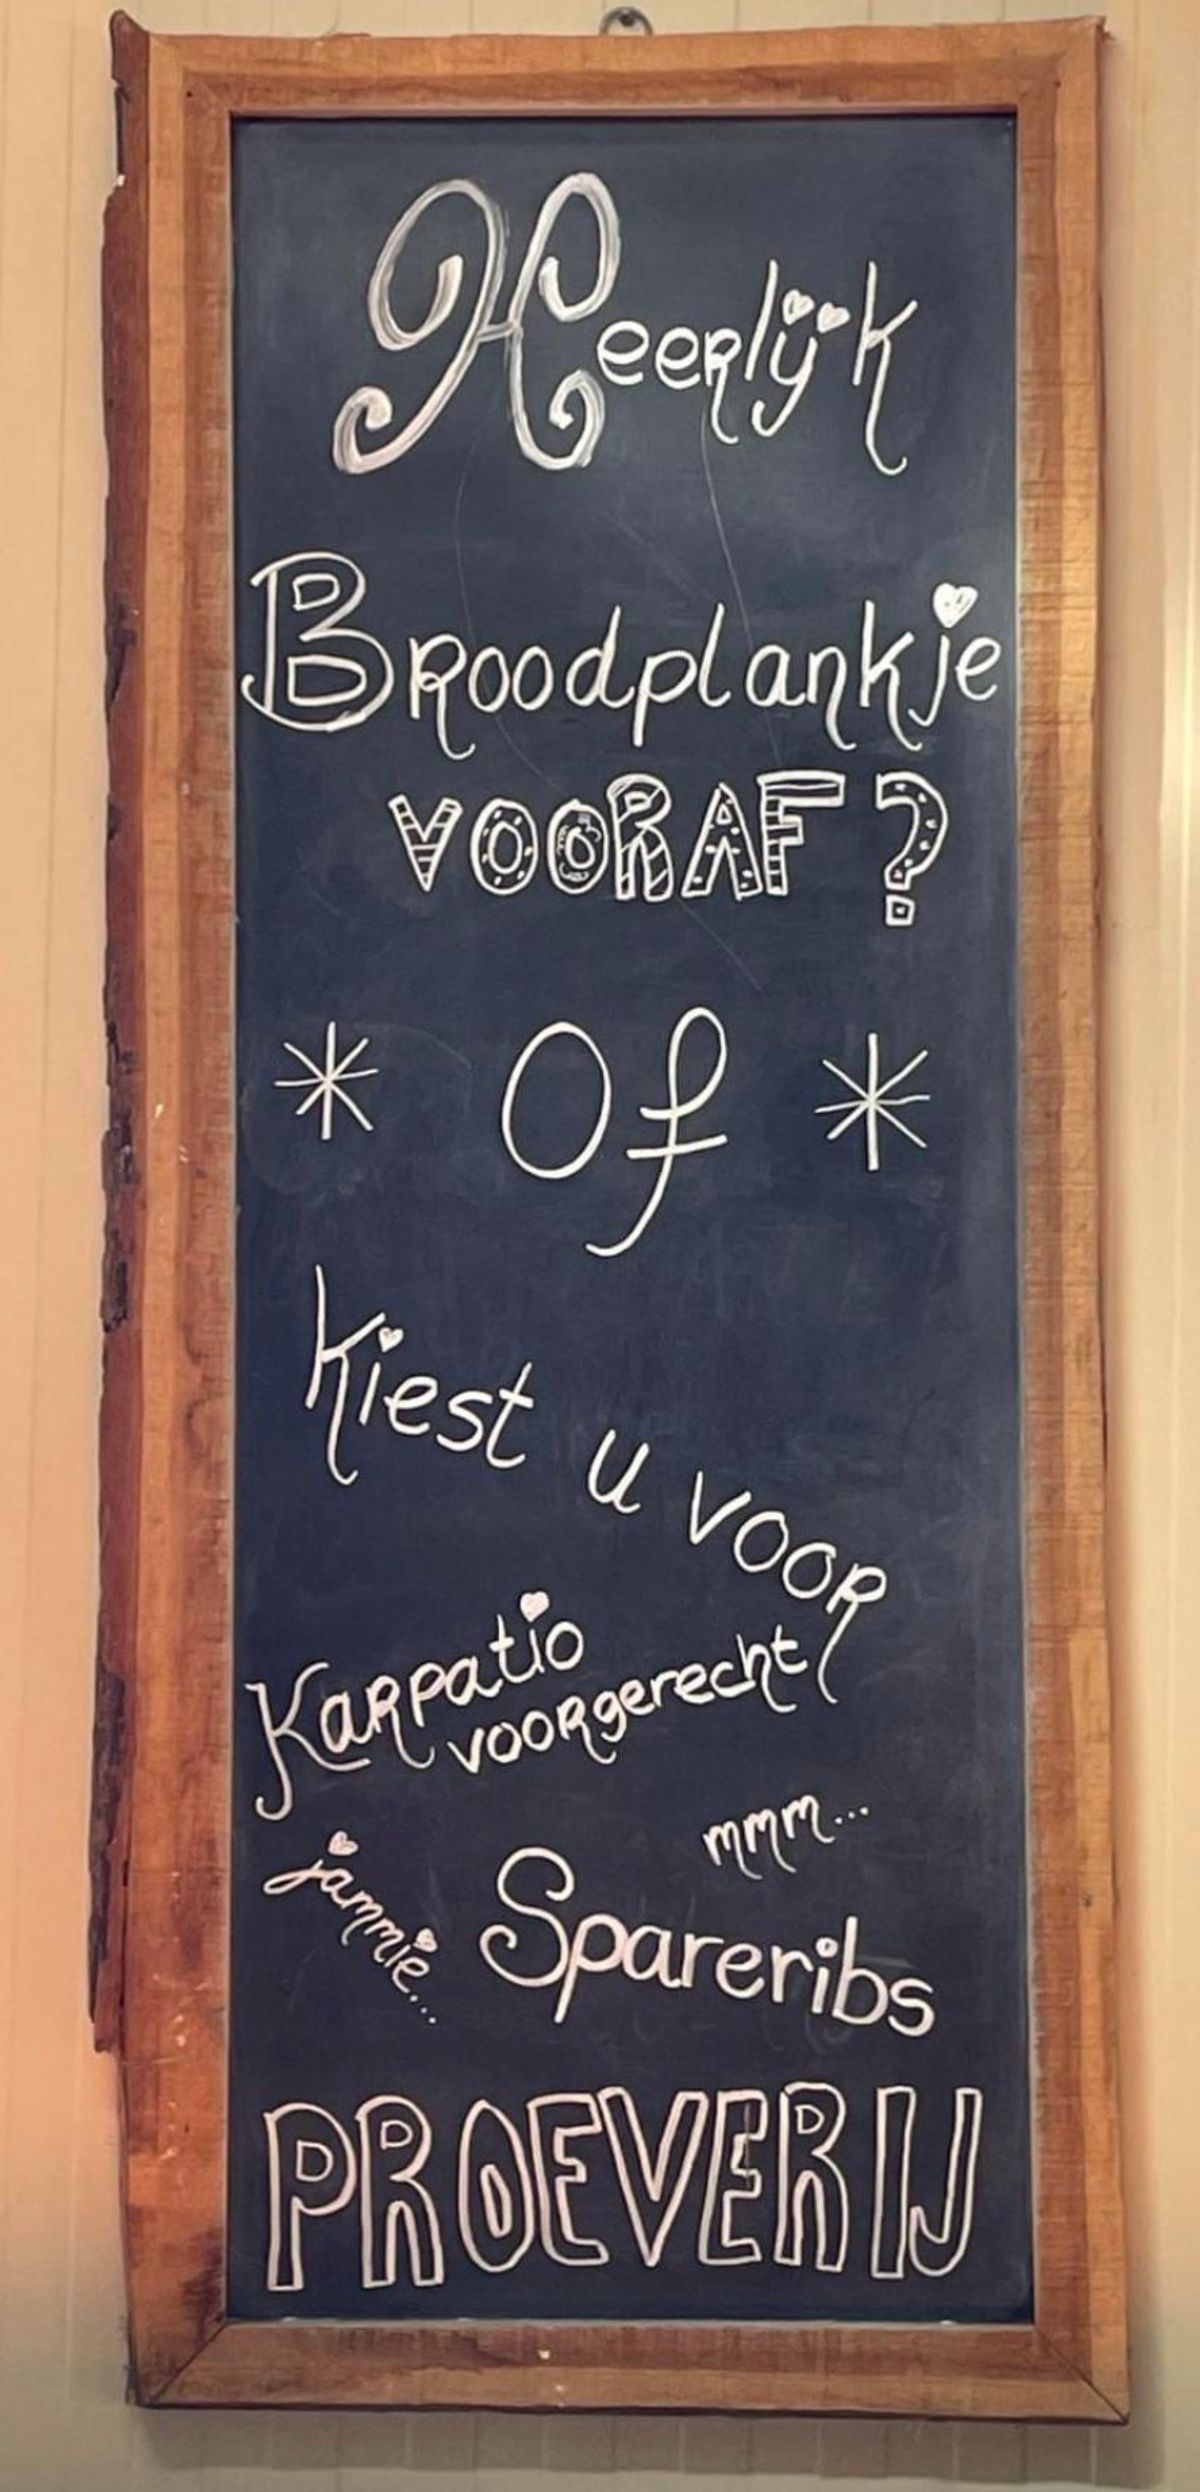 Heerlijk
Broodplankje
VOORAF?
* Of *
Kiest u voor
Karpatio
voorgerecht
mmm...
jammie...
Spareribs
PROEVERIJ